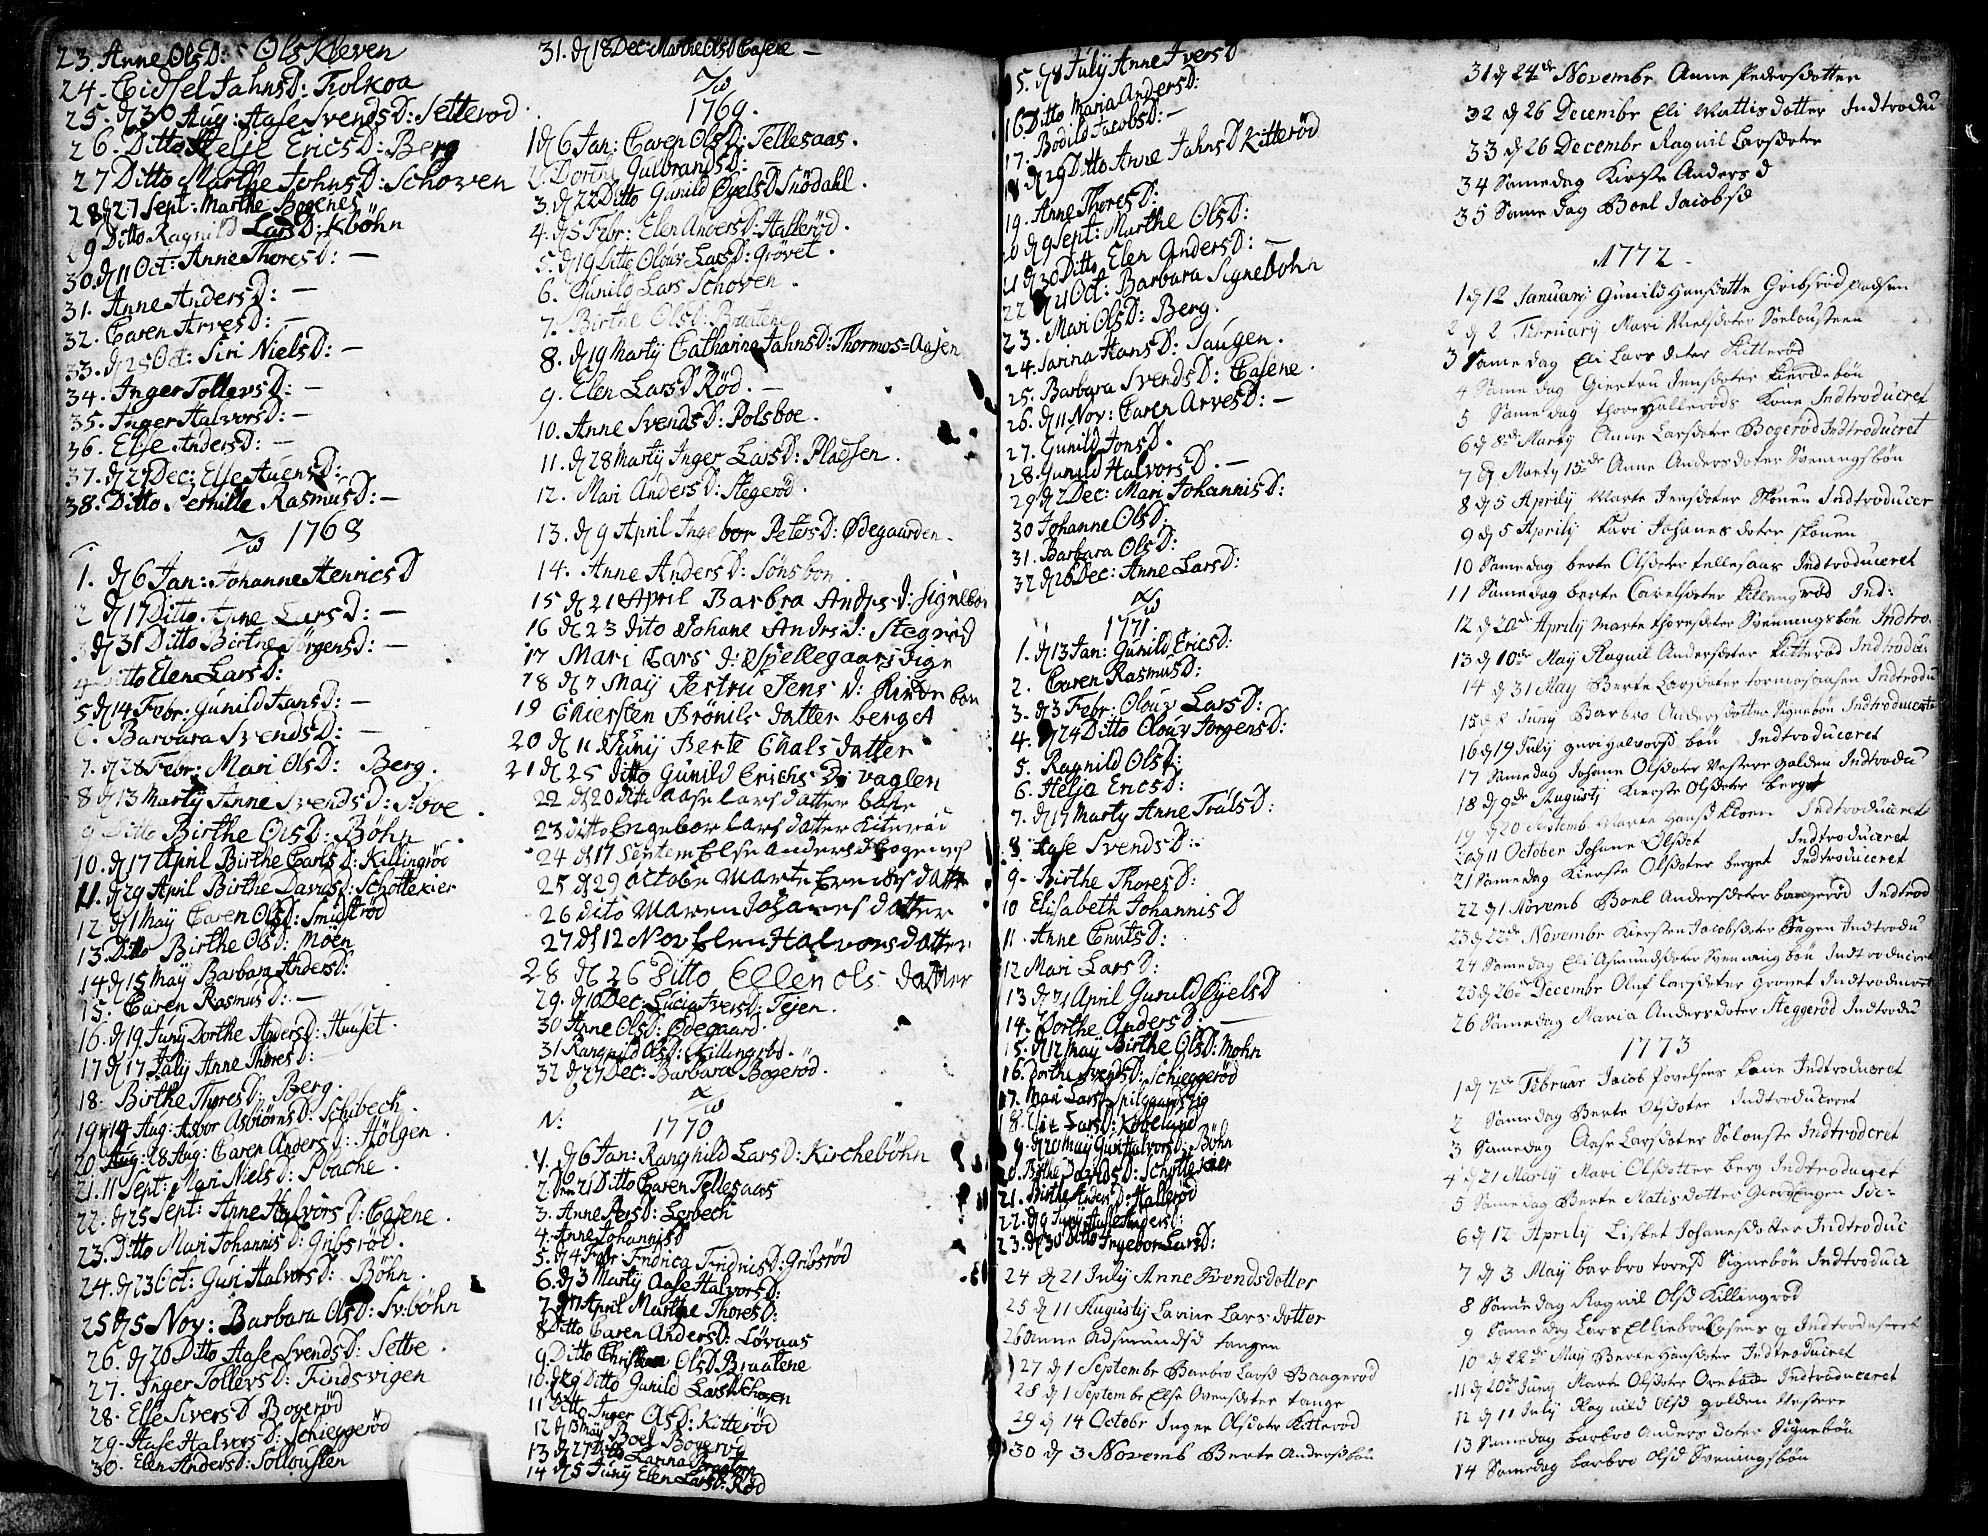 23. Anne OlsD: Ols Kleven
24. Cidsel JahnsD: Tolkoa
25. d 30 Aug: Aase SvendsD: Setterød
26. Ditto Helje EricsD: Berg
27 Ditto Marthe JohnsD: Schoven
28 d 27 Sept: Marthe Bogenes
29 Ditto Ragnild LarsD: Kbøhn
30. d 11 Oct: Anne ThoresD: —
31. Anne AndersD: —
32. Caren ArvesD: —
33. d 25 Oct: Siri NielsD: —
34. Inger TollevsD: —
35. Inger HalvorsD: —
36. Else AndersD: —
37. d 27 Dec: Else AuensD:
38. Ditto Pernille RasmusD: —
1768
1. d 6 Jan: Johanne HenricsD
2 d 17 Ditto. Anne LarsD: —
3 d 31 Ditto Birthe JørgensD: —
4 Ditto Elen LarsD:
5 d 14 Febr: Gunild HansD: —
6. Barbara SvendsD: —
7. d 28 Febr: Mari OlsD: Berg.
8 d 13 Martij Anne SvendsD: S:boe.
9 Ditto Birthe OlsD: Bøhn
10. d 17 April Birthe CarlsD: Killingrød
11. d 29 April Birthe DavidsD: Schottekier
12 d 1 Maij Caren OlsD: Smidsrød
13. Ditto Birthe OlsD: Moen
14 d 15 Maij Barbara AndersD:
15. Caren RasmusD: —
16. d 19 Junij Dorthe AndersD: Huuset.
17 d 17 July Anne ThoresD: —
18. Birthe ThoresD: Berg.
19 d 14 Aug: Asbor AsbiørnsD: Schibech.
20. Aug: 28 Aug: Caren AndersD: Hølgen.
21. 11 Sept: Mari NielsD: Pbache.
22. d 25 Sept: Anne HalvorsD: Casene.
23. Ditto Mari JohannisD: Gribsrød.
24. d 23 Oct: Guri HalvorsD: Bøhn.
25 d 5 Nov: Barbara OlsD: Sv:bøhn
26. d 26 Ditto Aase SvendsD: Sette.
27. Inger TollevsD: Findsvigen
28. Else SiversD Bogerød
29. Aase HalvorsD: Schieggerød
30. Elen AndersD: Sollousten
31. d 18 Dec: Marthe OlsD Casene —
1769.
1 d 6 Jan: Caren OlsD: Tellesaas.
2. Dorthe GulbrandsD: —
3. d 22 Ditto Gunild ØyelsD Snødahl.
4. d 5 Febr: Elen AndersD: Hallerød.
5. d 19 Ditto Olouv LarsD: Grøvet.
6. Gunild Lars Schoven.
7. Birthe OlsD: Braatene
8. d 19 Martij Catharina JahnsD: Thormos=Aasen
9. Elen LarsD Rød. —
10. Anne SvendsD: Polsboe.
11. d 28 Martij Inger LarsD: Pladsen.
12. Mari AndersD: Stegerød.
13. d 9 April Ingebor PetersD: Ødegaarden.
14. Anne AndersD: Sønsbon.
15 d 21 April Barbra Andrs d: signebon
16 d 23 dito Johane Andrs d: Stegrød
17 Mari Lars d: Spellegaarsdige
18 d 7 Maij Jestru Jens d: Kirkebon
19 Chiersten Brönils datter berget
20 d 11 Junij Berte Chals datter
21 d 25 ditto Gunild Erichs D: Vaglen
22 d 20 ditto aase lars datter base
23 ditto Engebor lars datter Kiterød
24 d 17 Septem Else anders d Bogenes
25 d 29 octobe Marte Evenøs datte
26 dito Maren Johanes datter
27 d 12 Nov Elen Halvors datter
28 d 26 Ditto Ellen ols datter
29. d 10 Dec: Lucia IversD: Tejen.
30 Anne OlsD: Ødegaard.
31 Rangnild OlsD: Killingrød.
32 d 27 Dec: Barbara Bogerød.
N: 1770
1. d 6 Jan: Ranghild LarsD: Kirchebøhn
2. Den 21 Ditto Caren Tellesaas
3. Anne PersD: Lerbech
4. Anne JohannisD
5. d 4 Febr: Fridrica FridricsD: Gribsrød
6. d 3 Martij Aase HalvorsD:
7 d 17 April Marthe ThoresD:
8 Ditto Caren AndersD: Løvaas
9. Ditto Christian OlsD Braatene
10. d 29 Ditto Gunild LarsD Schoven
11 Ditto Inger OlsD: Kitterød
12 d 13 Maij Boel Bogerød
13 d 27 Ditto Larina Braaten
14 d 5 Junij Elen LarsD: Rød
15. d 8 Julij Anne IversD
16. Ditto Maria AndersD:
17. Bodild JacobsD: —
18 d 29 Ditto Anne JahnsD Kitterød
19. Anne ThoresD:
20 d 9 Sept: Marthe OlsD:
21 d 30 Ditto Elen AndersD: —
22 d 21 Oct: Barbara Signebohn
23. Mari OlsD: Berg.
24. Sarina HansD: Saugen.
25. Barbara SvendsD: Casene.
26. d 11 Nov: Caren ArvesD: —
27. Gunild JonsD.
28. Gunild HalvorsD. —
29 d 2 Dec: Mari JohannisD:
30 Johanne OlsD.
31. Barbara OlsD:
32 d 26 Dec: Anne LarsD:
1771.
1. d 13 Jan: Gunild EricsD:
2. Caren RasmusD:
3. d 3 Febr: Olouv LarsD:
4. d 24 Ditto Olouv JorgensD:
5. Ragnild OlsD:
6. Helja EricsD:
7. d 17 Martij Anne TrulsD:
8 Aase SvendsD:
9. Birthe ThoresD:
10 Elisabeth JohannisD
11. Anne CnutsD:
12 Mari LarsD:
13 d 21 April Gunuld ØyelsD
14. Dorthe AndersD: —
15. d 12 Maij Birthe OlsD: Mohn
16. Dorthe SvendsD: Schieggerød
17. Mari LarsD: Spilgaardsdig
18. Elie LarsD: Kobeland
19. d 20 Maij Guri HalvorsD: Bøhn
20. Birthe DavidsD: Schottekier
21. Birthe AndersD: Hallerød
22. d 9 Junij Aasse AndersD:
23. d 30 Ditto Ingebor LarsD:
24 d 21 Julij Anne Svendsdotter
25 d 11 Augustij Lavine Larsdotter
26 Anne Adsmundsd tangen
27 d 1 Septembr Barbro Larsd Baagerød
28 d 1 Septembr Else Ovensdeter tange
29 d 14 Octobr Inger Olsdoter Kitterød
30 d 3 Novemb Berte Andersdbøn
31 d 24de Novembr Anne Pedersdotter
32 d 26 Decembr Eli Mattisdotter Indtrodu
33 d 26 Decembr Ragnil Larsdeter
34 Samedag Kirste Andersd
35 Samedag Boel Jacobsd
1772.
1 d 12 January Gunild Hansdotte Gribsrød padsen
2 d 2 February Mari Nielsdoter Soelousteen
3 Samedag Eli Larsdeter Kitterød
4 Samedag Giertru Jensdoter Kierdebøn
5 Samedag thore Hallerøds kone Indtroduceret
6 d 8de Martij Anne Larsdoter Bogerød Indtroduceret
7 d Martij 15de Anne Andersdoter Svenningsbøn
8 d 5 Aprilij Marte Jensdoter Skouen Indtroducer
9 d 5 Aprilij Kari Johanesdoter skouen
10 Samedag berte Olsdoter tellesaas Indtroduceret
11 Samedag berte Carelsdoter killengrød Ind:
12 d 20de Aprilij Marte thoresdoter Svenningsbøn Indtro.
13 d 10de Maij Ragnil Andersdoter kitterød Indtrodu:
14 d 31 Maij Berte Larsdoter tormosaasen Indtrodu
15 d 8 Junij Barbro Andersdotter Signebøn Indtroducerte
16 d 19 July guri Halvorsd bøn Indtroduceret
17 Samedag Johane Olsdoter Vestere golden Indtrodu
18 d 9de Augustij Kierste Olsdoter berget
19 d 20 Septemb Marte Hansd kloen Indtroduceret
20 d 11 October Johane Olsdot Indtroduceret
21 Samedag Kierste Olsdoter berget Indtroduceret
22 d 1 Novemb Boel Andersdoter baagerød Indtrod
23 d 22de Novembr Kiersten Jacobsdoter Hagen Indtrodu
24 Samedag Eli Asmundsdoter Svenningbøn Indtroducer
25 d 26de Decembr Oluf Larsdoter grovet Indtroduceret
26 Samedag Maria Andersdoter Steggerød Indtrodu
1773
1 d 7de Februar Jacob Povelsens Kone Indtroduceret
2 Samedag Berte Olsdoter Indtroduceret
3 Samedag Aase Larsdoter Solouste Indtrodceret
4 d 21 Martij Mari Olsdotter berg Indtroduceret
5 Samedag Berte Matisdotter Gierdsengen Idc:
6 d 12 Aprilij Lisbet Johanesdotter Indtroduc
7 d 3 Maij barbro toresd Signebøn Indtroduce
8 Samedag Ragnil Olsd Killingrød
9 Samedag Lars Indtroduseret
10 d 22de Maij Berte Hansdoter Indtroduceret
11 d 20de Junij Marte Olsdoter Indtroduceret
12 d 11 July Ragnild Olsd golden Vestere
13 Samedag barbro Andersdoter Signebøn
14 Samedag barbro Olsd Sveningsbøn